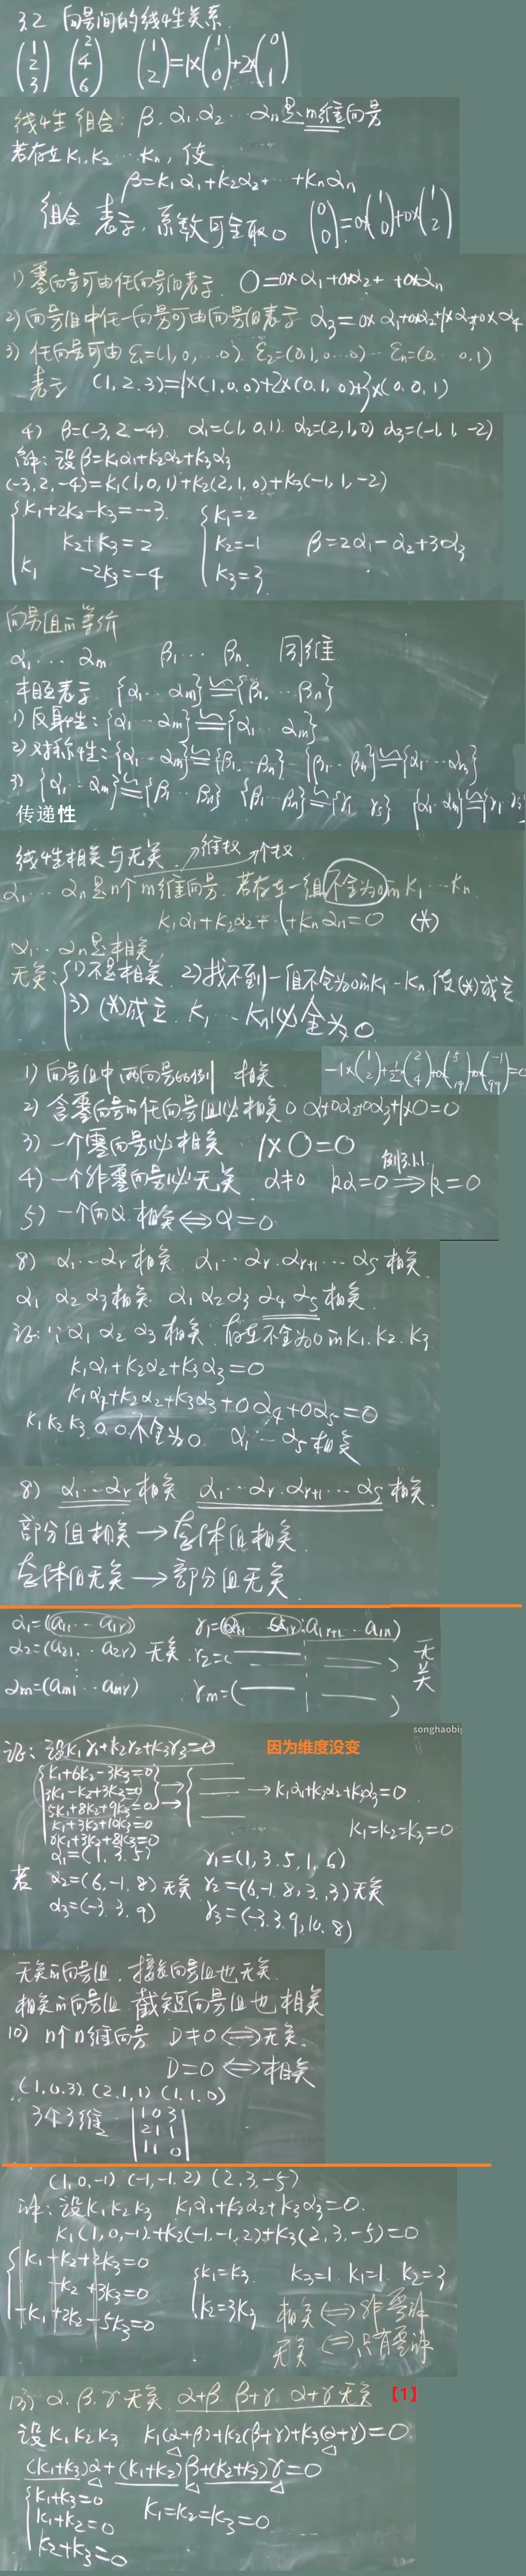 3.2 向量间的线性关系.
(1 2 3) (2 4 6) (1 2)=1×(1 0)+2×(0 1)
线性组合: β, α₁, α₂ … αₙ是m维向量
若存在k₁, k₂ … kₙ, 使
β=k₁α₁+k₂α₂+ … +kₙαₙ
组合 表示, 系数可全取0 (0 0)=0×(1 0)+0×(1 2)
1) 零向量可由任向量组表示. 0=0×α₁+0×α₂+ +0×αₙ
2) 向量组中任一向量可由向量组表示 α₃=0×α₁+0×α₂+1×α₃+0×α₄
3) 任向量可由 ε₁=(1,0,…0). ε₂=(0,1,0…0) … εₙ=(0. 0,1)
表示 (1,2,3)=1×(1,0,0)+2×(0,1,0)+3×(0,0,1)
4) β=(-3,2,-4). α₁=(1,0,1). α₂=(2,1,0) α₃=(-1,1,-2)
解: 设β=k₁α₁+k₂α₂+k₃α₃
(-3,2,-4)=k₁(1,0,1)+k₂(2,1,0)+k₃(-1,1,-2)
k₁+2k₂-k₃=-3. k₁=2
k₂+k₃=2 k₂=-1 β=2α₁-α₂+3α₃
k₁ -2k₃=-4 k₃=3
向量组的等价
α₁ … αₘ β₁ … βₙ. 同维
相互表示 {α₁ … αₘ}≌{β₁. … βₙ}
1) 反身性: {α₁ … αₘ}≌{α₁ … αₘ}
2) 对称性: {α₁ … αₘ}≌{β₁ … βₙ} {β₁ … βₙ}≌{α₁ … αₘ}
3) {α₁ … αₘ}≌{β₁ … βₙ} {β₁ … βₙ}≌{γ₁ γₛ} {α₁ … αₘ}≌{γ₁ γₛ
传递性
线性相关与无关. 维数 个数
α₁ … αₙ是n个m维向量. 若存在一组不全为0的k₁ … kₙ.
k₁α₁+k₂α₂+ … +kₙαₙ=0 (*)
α₁ … αₙ是相关
无关: 1) 不是相关. 2) 找不到一组不全为0的k₁ … kₙ使(*)成立
3) (*)成立. k₁ … kₙ必全为0
1) 向量组中两向量成比例 相关
-1×(1 2)+½(2 4)+0×(5 19)+0×(-1 99)=0
2) 含零向量的任向量组必相关 0α₁+0α₂+0α₃+1×0=0
3) 一个零向量必相关 1×0=0
4) 一个非零向量必无关 α≠0 kα=0⟹k=0
例3.1.1
5) 一个向α 相关⟺α=0
8) α₁ … αᵣ相关 α₁ … αᵣ.αᵣ₊₁ … αₛ相关
α₁ α₂ α₃相关. α₁ α₂ α₃ α₄ α₅相关.
证: ∵α₁ α₂ α₃相关. 存在不全为0的k₁.k₂.k₃
k₁α₁+k₂α₂+k₃α₃=0
k₁α₁+k₂α₂+k₃α₃+0α₄+0α₅=0
k₁ k₂ k₃.0.0.不全为0 α₁ … α₅相关
8) α₁ … αᵣ相关 α₁ … αᵣ.αᵣ₊₁ … αₛ相关.
部分组相关→整体组相关
整体组无关→部分组无关
α₁=(a₁₁ … a₁ᵣ) γ₁=(a₁₁ a₁ᵣ, a₁ᵣ₊₁ … a₁ₙ)
α₂=(a₂₁. … a₂ᵣ) 无关. γ₂=( ) 无关
αₘ=(aₘ₁ … aₘᵣ) γₘ=( )
songhaobi
证: 设k₁γ₁+k₂γ₂+k₃γ₃=0 因为维度没变
k₁+6k₂-3k₃=0
3k₁-k₂+3k₃=0 → k₁α₁+k₂α₂+k₃α₃=0
5k₁+8k₂+9k₃=0
k₁+3k₂+10k₃=0 k₁=k₂=k₃=0
6k₁+3k₂+8k₃=0
α₁=(1,3,5) γ₁=(1,3,5,1,6)
若 α₂=(6,-1,8) 无关 γ₂=(6,-1,8,3,3) 无关
α₃=(-3,3,9) γ₃=(-3,3,9,10,8)
无关的向量组, 接长向量组也无关.
相关的向量组 截短向量组也相关
10) n个n维向量 D≠0⟺无关.
D=0⟺相关
(1.0.3). (2.1.1) (1.1.0)
3个3维 |1 0 3|
|2 1 1|
|1 1 0|
(1,0,-1). (-1,-1,2) (2,3,-5)
解: 设k₁ k₂ k₃ k₁α₁+k₂α₂+k₃α₃=0.
k₁(1,0,-1)+k₂(-1,-1,2)+k₃(2,3,-5)=0
k₁+k₂+2k₃=0 k₁=k₃. k₃=1. k₁=1. k₂=3
-k₂+3k₃=0 k₂=3k₃
-k₁+2k₂-5k₃=0 相关⟺非零解
无关⟺只有零解
13) α.β.γ无关 α+β β+γ α+γ无关 【1】
设k₁ k₂ k₃ k₁(α+β)+k₂(β+γ)+k₃(α+γ)=0
(k₁+k₃)α+(k₁+k₂)β+(k₂+k₃)γ=0
k₁+k₃=0
k₁+k₂=0 k₁=k₂=k₃=0
k₂+k₃=0